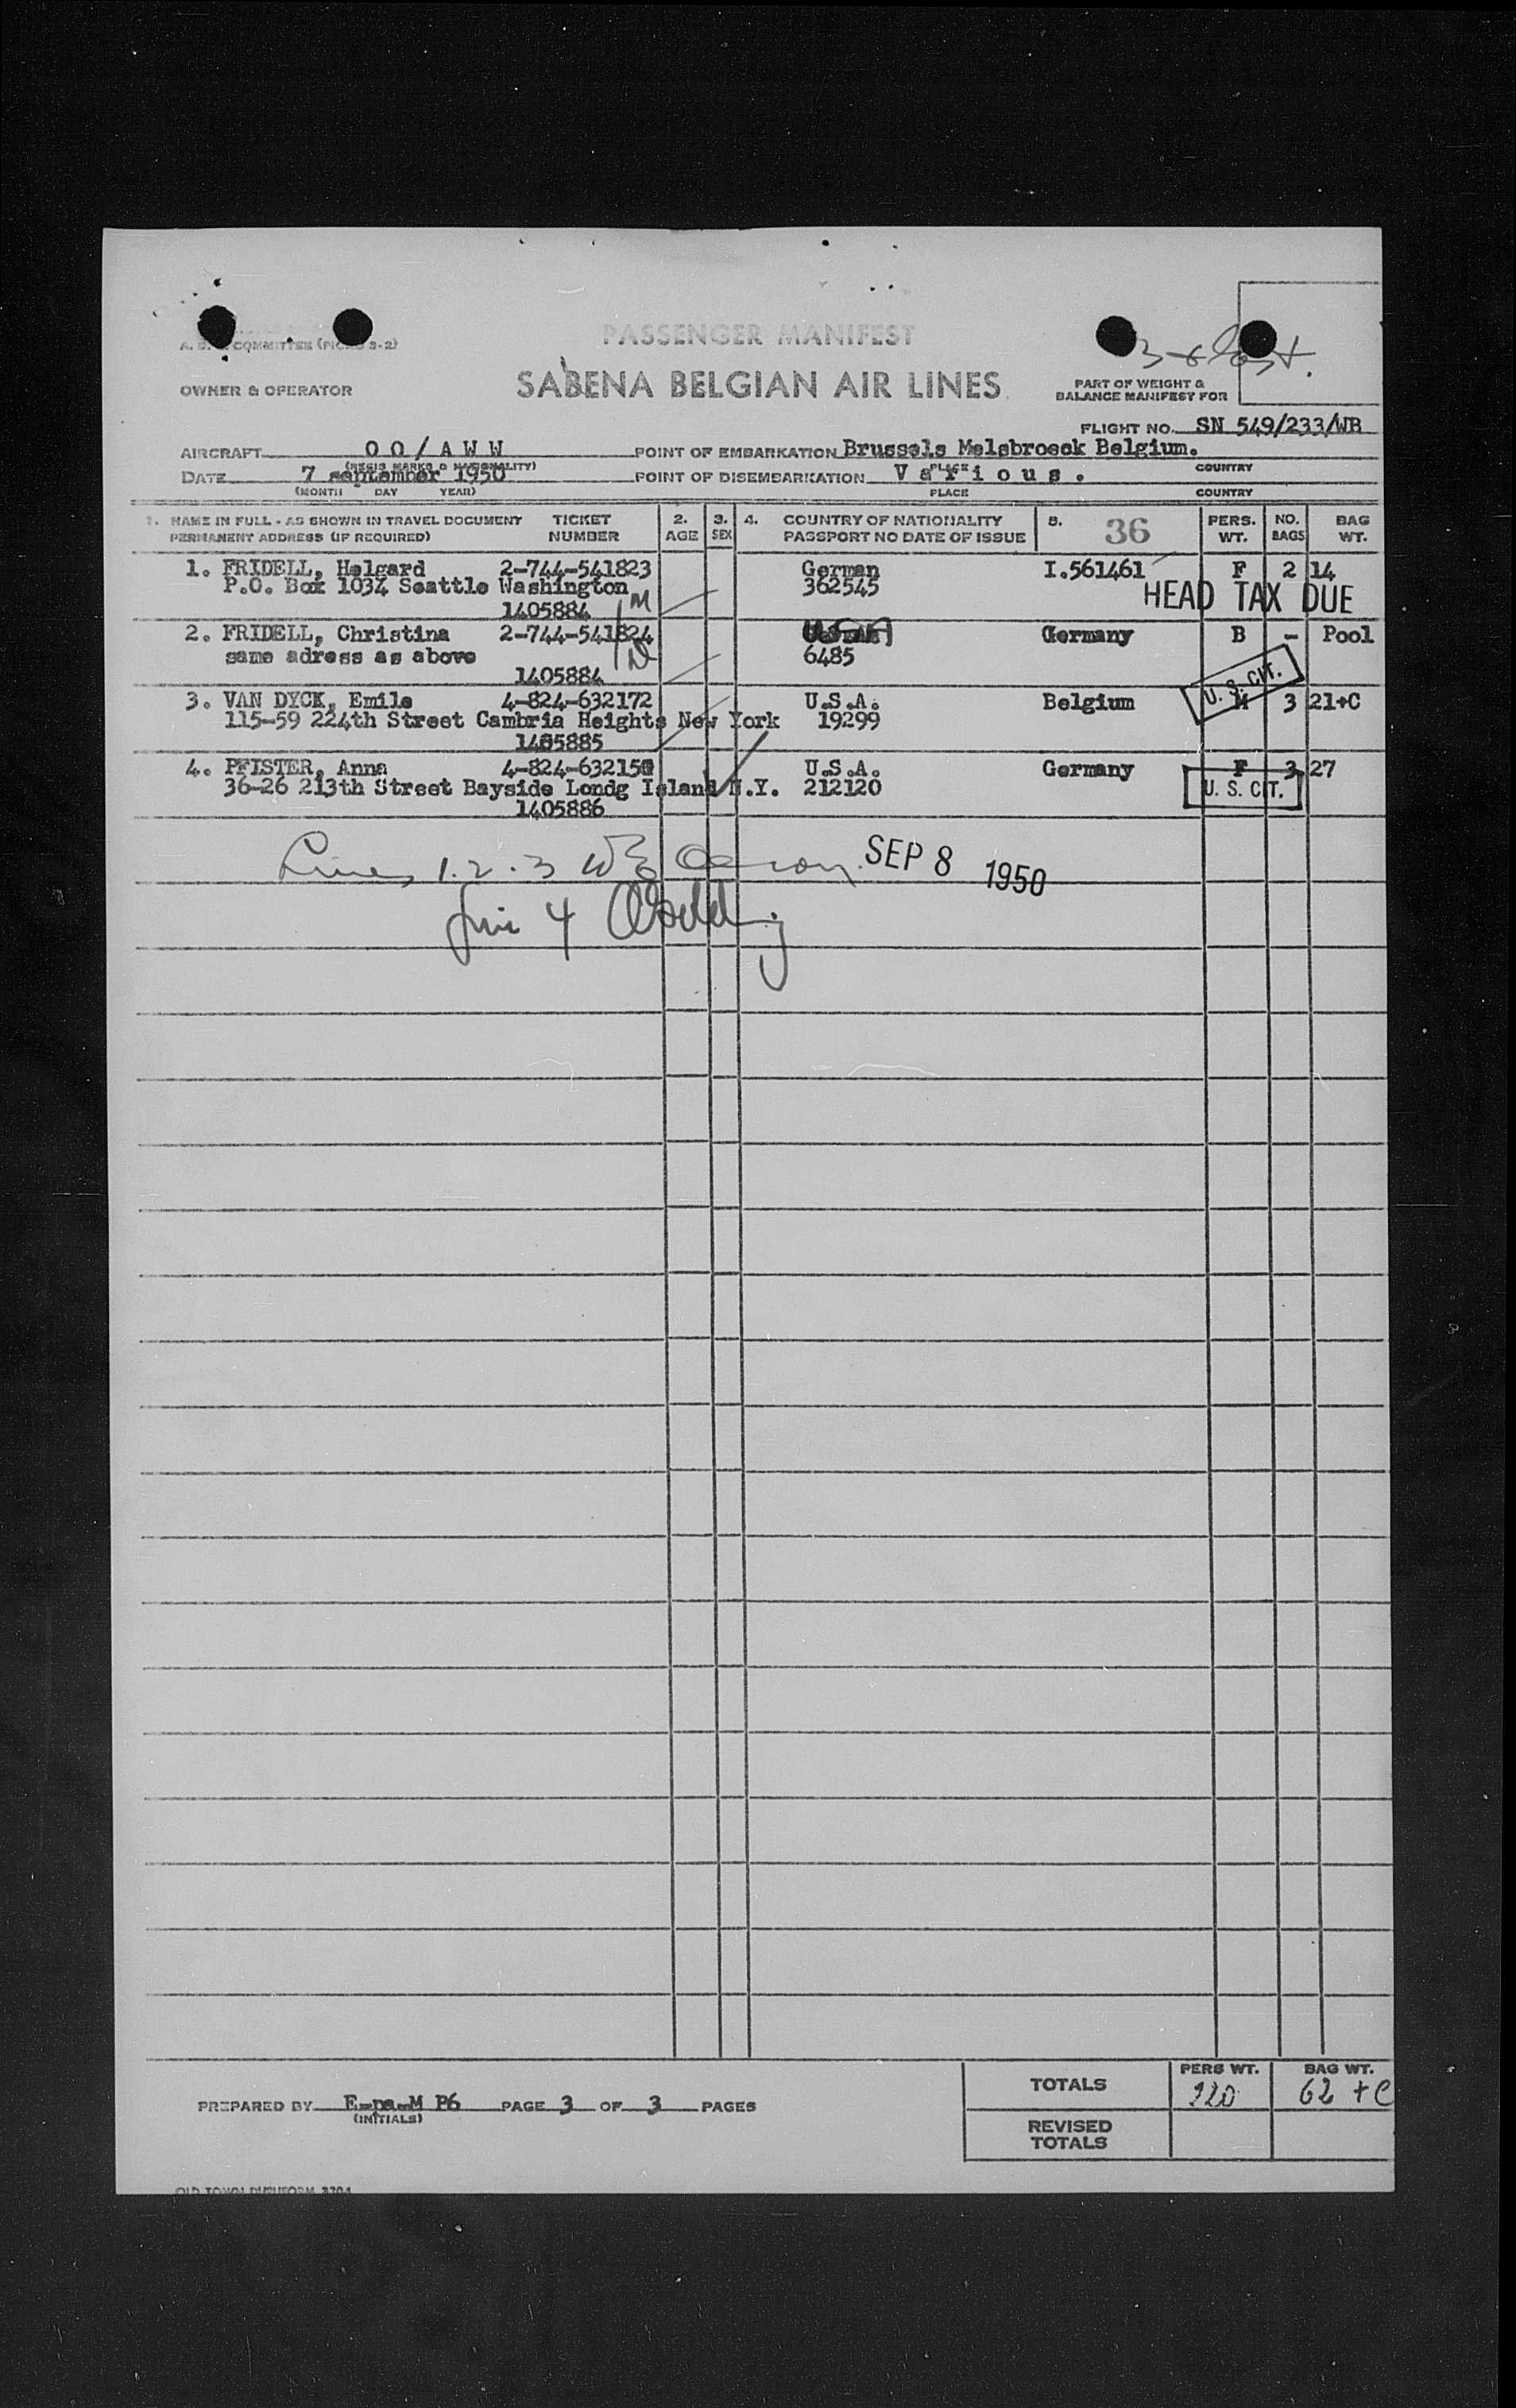 PASSENGER MANIFEST
COMMITTEE 3-2)
SABENA BELGIAN AIR LINES
OWNER & OPERATOR
PART OF WEIGHT &
BALANCE MANIFEST FOR
FLIGHT NO. SN 549/233/WB
AIRCRAFT OO/AWW POINT OF EMBARKATION Brussels Melsbroeck Belgium.
(REGIS MARKS & NATIONALITY) PLACE COUNTRY
DATE 7 september 1950 POINT OF DISEMBARKATION Various.
(MONTH DAY YEAR) PLACE COUNTRY
1. NAME IN FULL - AS SHOWN IN TRAVEL DOCUMENT TICKET 2. 3. 4. COUNTRY OF NATIONALITY 5. 36 PERS. NO. BAG
PERMANENT ADDRESS (IF REQUIRED) NUMBER AGE SEX PASSPORT NO DATE OF ISSUE WT. BAGS WT.
1. FRIDELL, Helgard 2-744-541823 German I.561461 F 2 14
P.O. Box 1034 Seattle Washington 362545 HEAD TAX DUE
1405884 M
2. FRIDELL, Christina 2-744-541824 USA Germany B - Pool
same adress as above 6485
1405884
3. VAN DYCK, Emile 4-824-632172 U.S.A. Belgium M 3 21+C
U.S. CIT.
115-59 224th Street Cambria Heights New York 19299
1405885
4. PFISTER, Anna 4-824-632150 U.S.A. Germany F 3 27
36-26 213th Street Bayside Londg Island N.Y. 212120 U. S. CIT.
1405886
Lines 1.2.3 SEP 8 1950
Line 4
TOTALS PERS WT. BAG WT.
320 62 + C
PREPARED BY E-pa-M P6 PAGE 3 OF 3 PAGES
(INITIALS)
REVISED
TOTALS